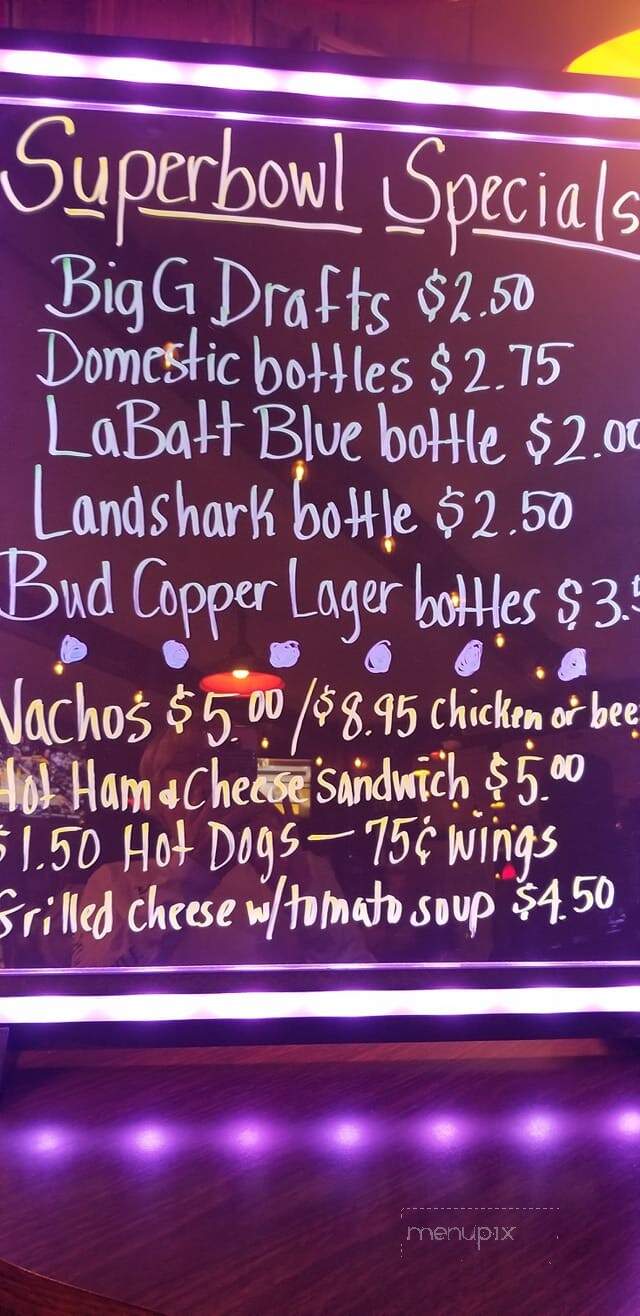 Superbowl Specials
Big G Drafts $2.50
Domestic bottles $2.75
LaBatt Blue bottle $2.00
Landshark bottle $2.50
Bud Copper Lager bottles $3.
Nachos $5.00/$8.95 chicken or bee
Hot Ham & Cheese sandwich $5.00
$1.50 Hot Dogs — 75¢ wings
Grilled cheese w/tomato soup $4.50
menupix